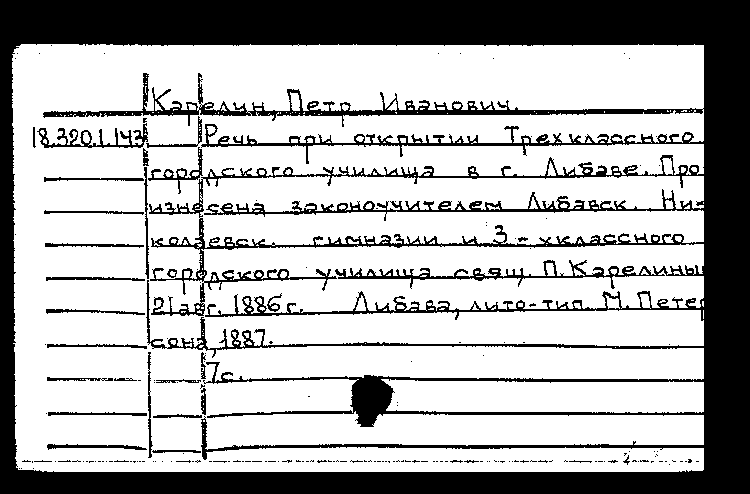 Карелин, Петр Иванович.
18.320.1.143 Речь при открытии Трехклассного
городского училища в г. Либаве. Про
изнесена законоучителем Либавск. Ни-
колаевск. гимназии и 3-хклассного
городского училища свящ. П. Карелины
21 авг. 1886 г. Либава, лито-тип. М. Петер
сона, 1887.
7с.